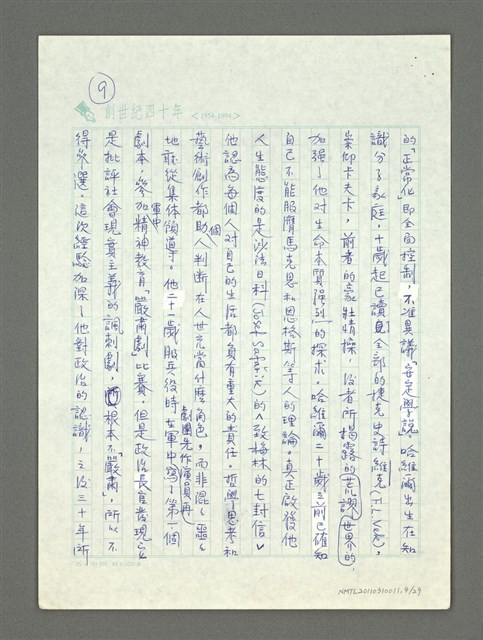 9
創世紀四十年 <1954-1994>
的「正常化」即全局控制，不准異議「安定學說」。哈維爾出生在知
識分子家庭，十歲起已讀全部的捷克史詩
崇仰卡夫卡，前者的豪壯情操，後者所揭露的荒謬世界的，
加強了他對生命本質強烈的探求。哈維爾二十歲之前已確知
自己不能服膺馬克思和恩格斯等人的理論。真正啟發他
人生態度的是沙法日科的《致梅林的七封信》
他認為每個人對自己的生活都負有重大的責任。哲學思考和
藝術創作都助個人判斷在人世充當什麼角色，而非混混噩噩
地耽從集体領導。他二十一歲服兵役時在軍中寫了第一個
劇本，參加軍中精神教育「嚴肅劇」比賽，但是政治長官發現
劇團先作演員再
是批評社會現實主義的諷刺劇，根本不「嚴肅」，所以不
得參選。這次經驗加深了他對政治的認識，之後三十年所
NMTL20110310011, 9/29